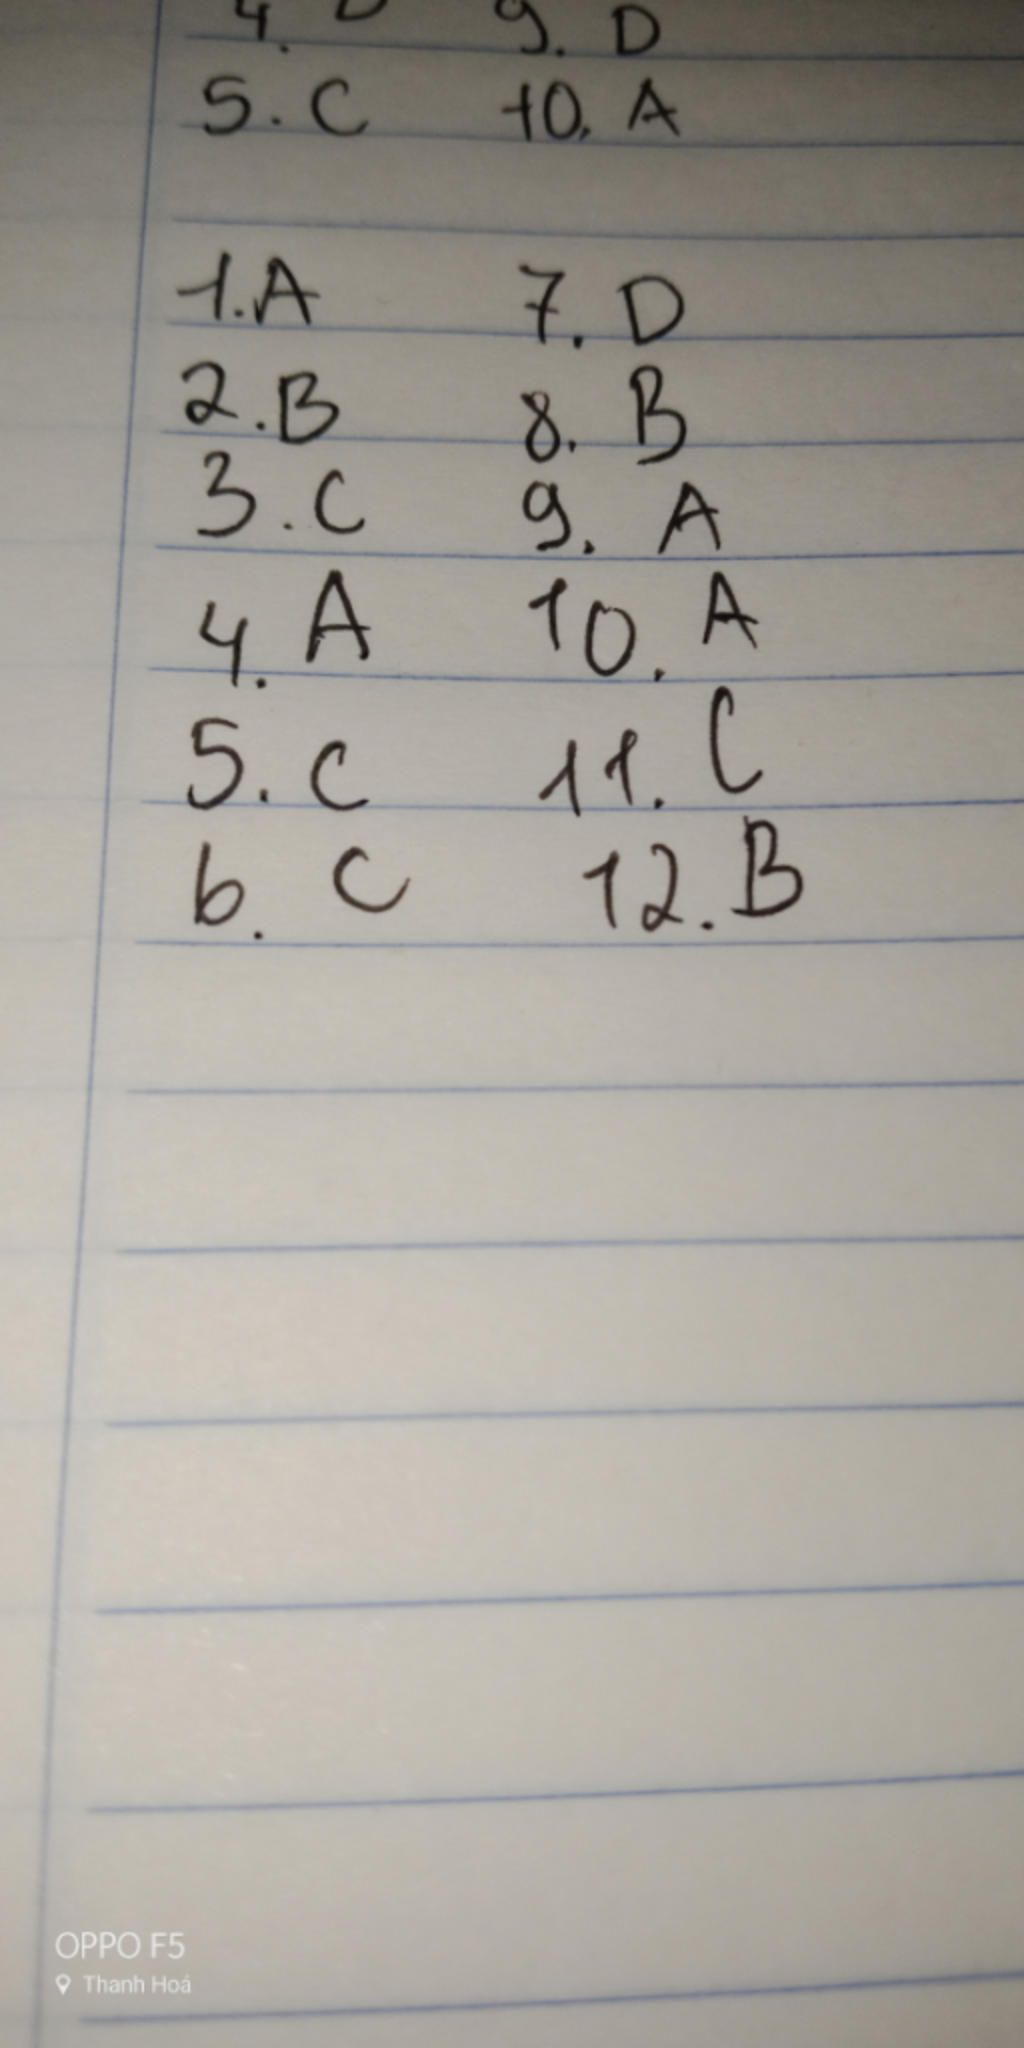 4. D 9. D
5. C 10. A
1. A 7. D
2. B 8. B
3. C 9. A
4. A 10. A
5. C 11. C
6. C 12. B
OPPO F5
Thanh Hoá